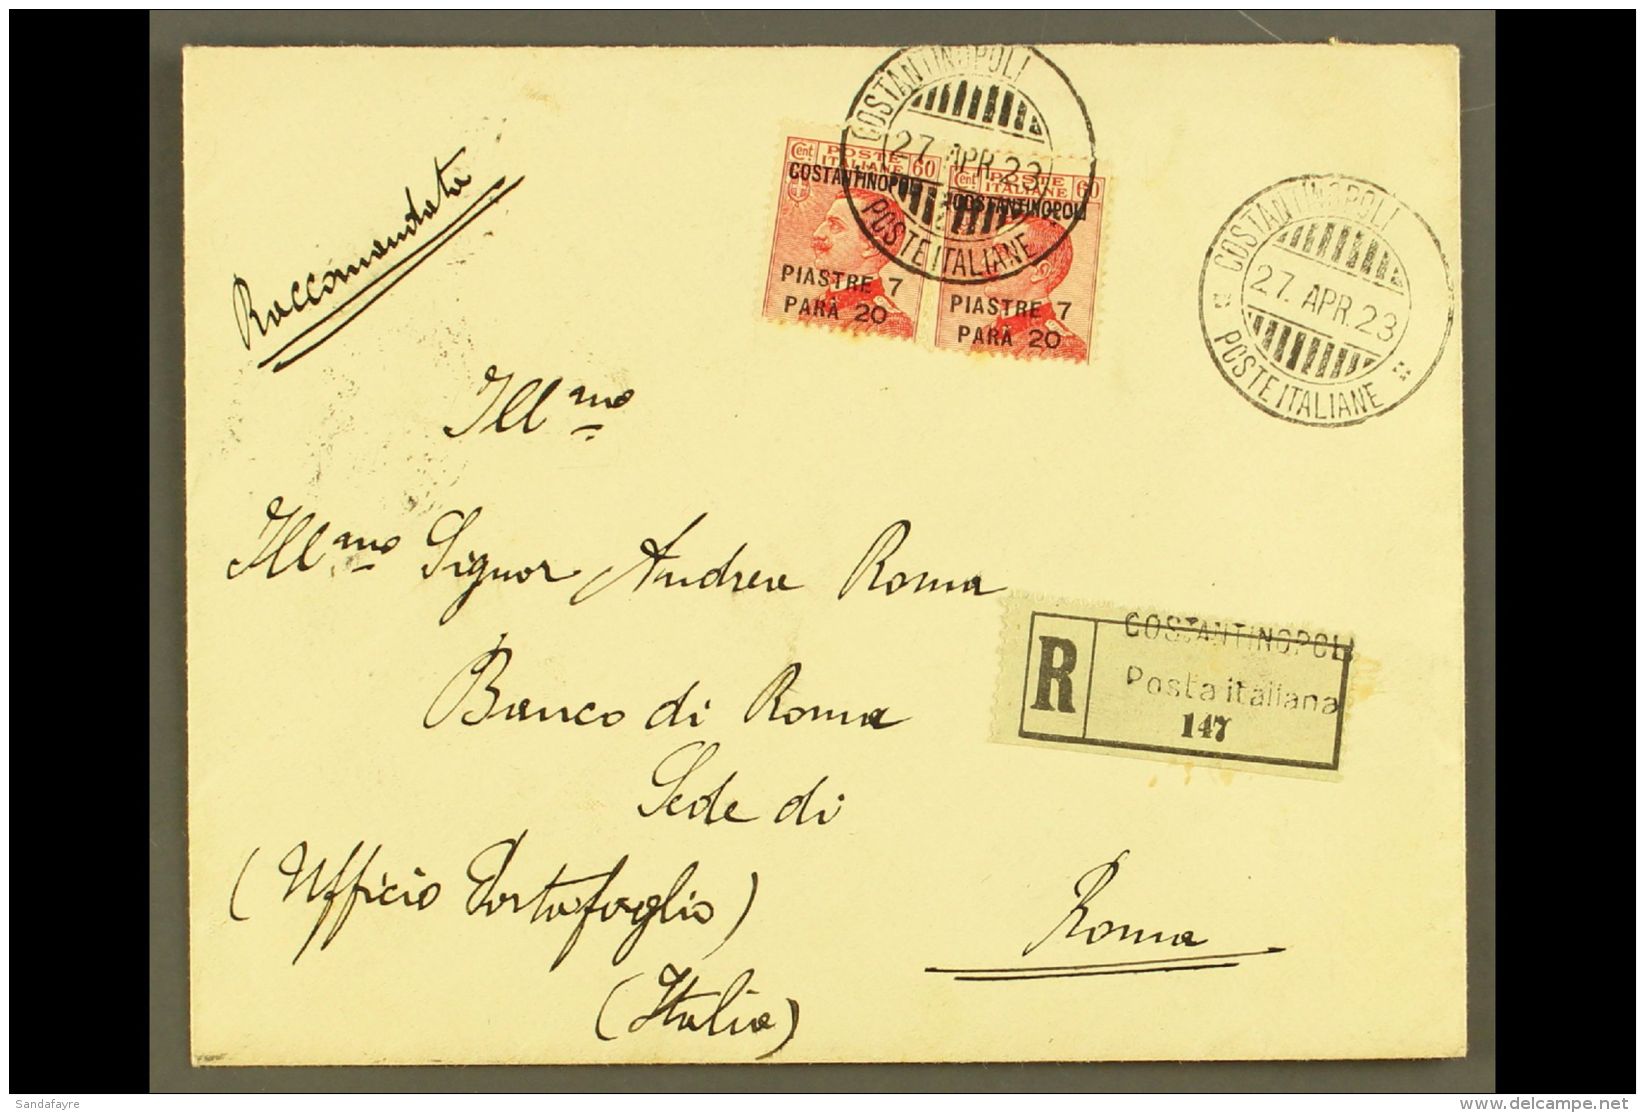 COSTANTINOPOLI
27. APR. 23
POSTE ITALIANE
Cent POSTE ITALIANE 60
COSTANTINOPOLI
PIASTRE 7
PARÀ 20
Cent POSTE ITALIANE 60
COSTANTINOPOLI
PIASTRE 7
PARÀ 20
COSTANTINOPOLI
27. APR. 23
POSTE ITALIANE
Raccomandata
Ill.mo
Ill.mo Signor Andrea Roma
Banco di Roma
Sede di
(Ufficio Portafoglio)
Roma
(Italia)
R
COSTANTINOPOLI
Posta italiana
147
Sandafayre
delcampe.net